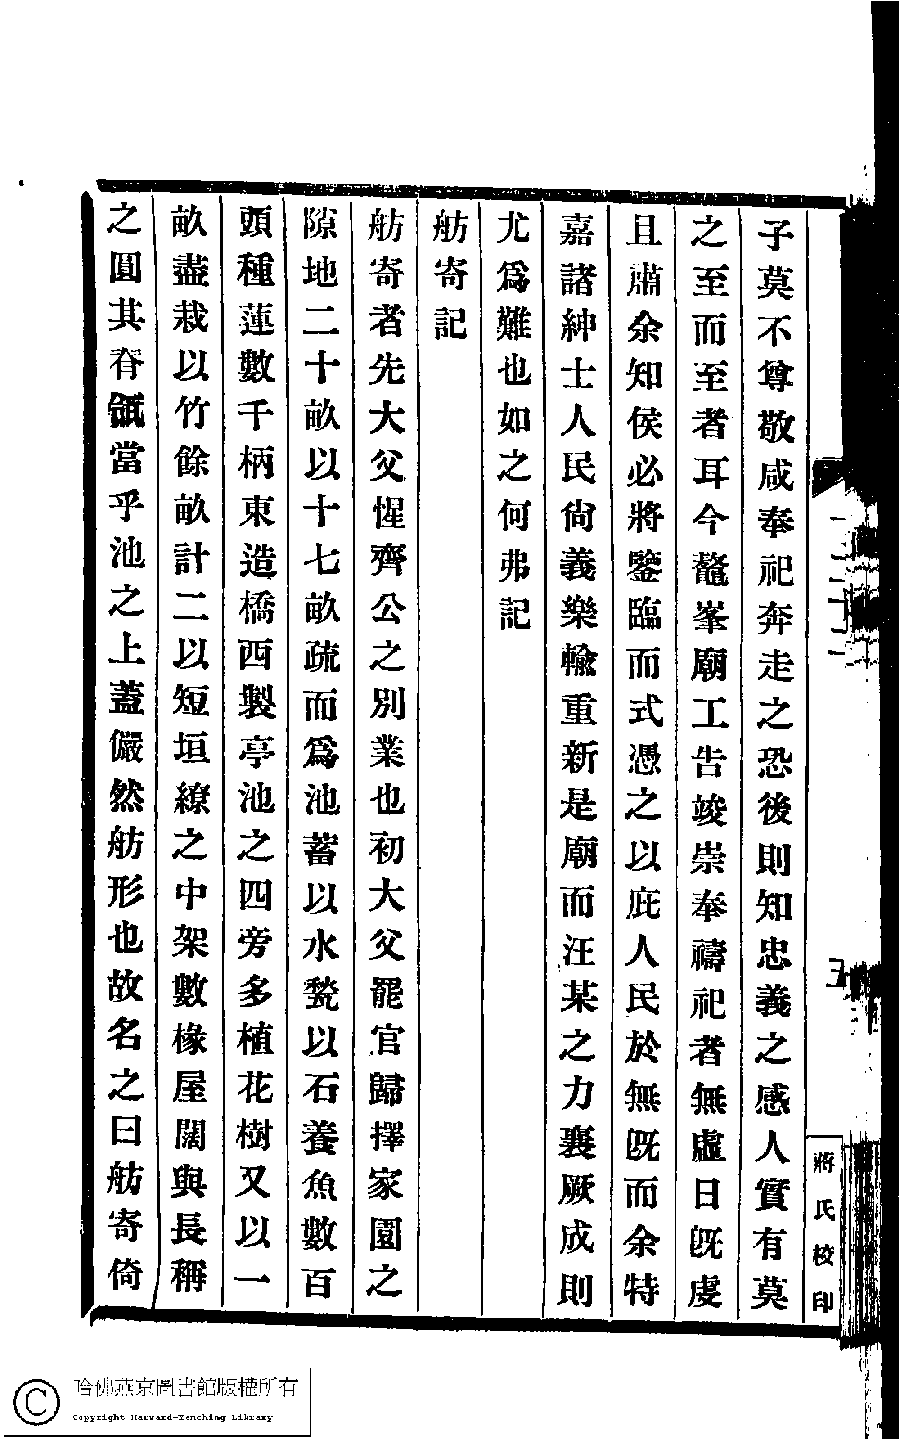 子莫不尊敬咸奉祀奔走之恐後則知忠義之感人實有莫
之至而至者耳今鼇峯廟工告竣崇奉禱祀者無虛日旣虔
且肅余知侯必將鑒臨而式憑之以庇人民於無旣而余特
嘉諸紳士人民尙義樂輸重新是廟而汪某之力襄厥成則
尤爲難也如之何弗記
舫寄記
舫寄者先大父惺齊公之別業也初大父罷官歸擇家園之
隙地二十畝以十七畝疏而爲池蓄以水甃以石養魚數百
頭種蓮數千柄東造橋西製亭池之四旁多植花樹又以一
畝盡栽以竹餘畝計二以短垣繚之中架數椽屋闊與長稱
之圓其脊瓴當乎池之上蓋儼然舫形也故名之曰舫寄倚
蔣氏校印
哈佛燕京圖書館版權所有
Copyright Harvard-Yenching Library